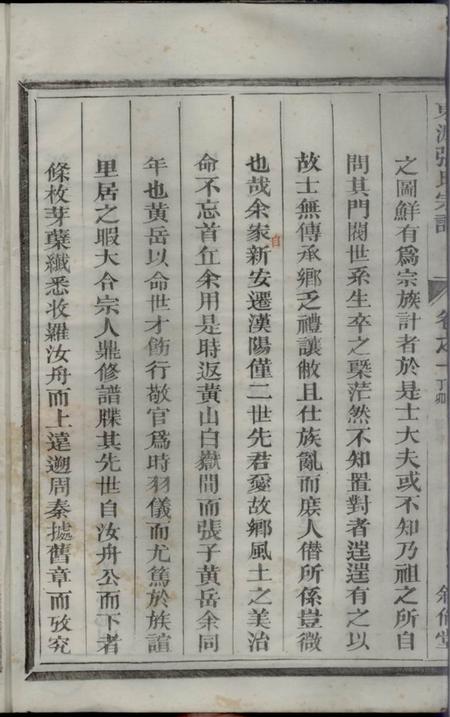 東源張氏宗譜
卷之一
丁卯
之圖鮮有爲宗族計者於是士大夫或不知乃祖之所自
問其門閥世系生卒之槩茫然不知置對者遑遑有之以
故士無傳承鄉乏禮讓敝且仕族亂而庶人僭所係豈微
也哉余家新安遷漢陽僅二世先君愛故鄉風土之美治
命不忘首丘余用是時返黃山白嶽間而張子黃岳余同
年也黃岳以命世才飭行敬官爲時羽儀而尤篤於族誼
里居之暇大合宗人鼎修譜牒其先世自汝舟公而下者
條枚芽蘖纖悉收羅汝舟而上遠遡周秦據舊章而攷究